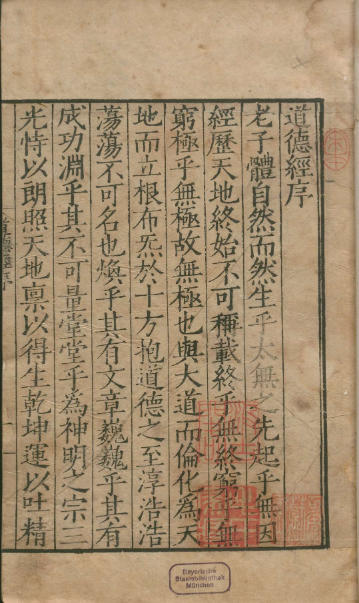 道德經序
老子體自然而然生乎太無之先起乎無因
經歷天地終始不可稱載終乎無終窮乎無
窮極乎無極故無極也與大道而倫化為天
地而立根布炁於十方抱道德之至淳浩浩
蕩蕩不可名也煥乎其有文章巍巍乎其有
成功淵乎其不可量堂堂乎為神明之宗三
光恃以朗照天地稟以得生乾坤運以吐精
Bayerische
Staatsbibliothek
München